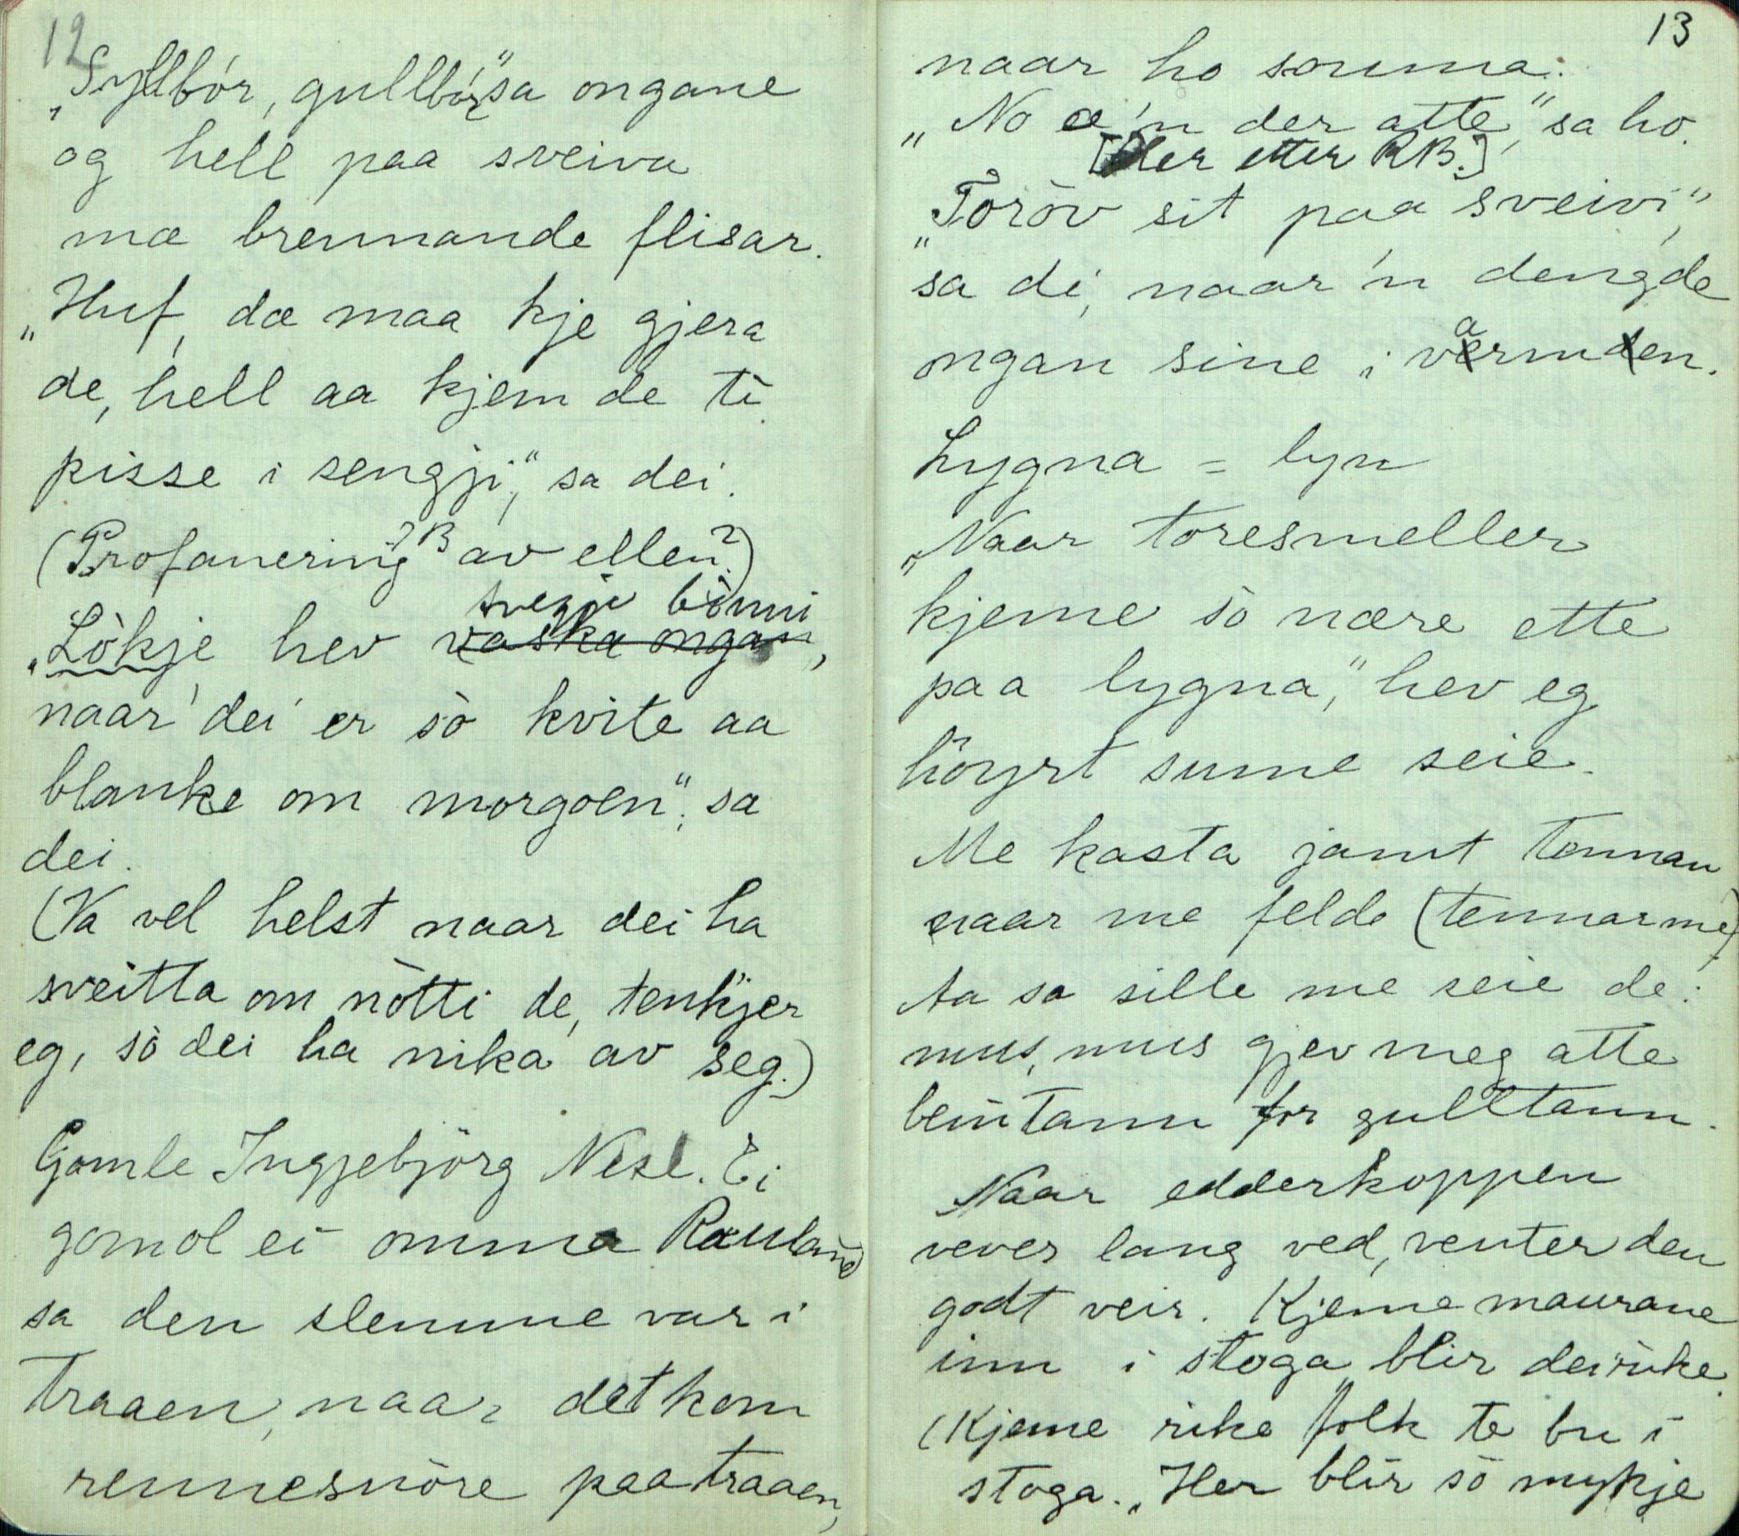 12
„Syllbór, gullbór" sa ongane
og hell paa sveiva
mæ brennande flisar.
„Huf, dæ maa kje gjera
de, hell aa kjem de tè
pisse i sengji," sa dei.
(Profanering ? B av ellen?)
svegje bònni
„Lòkje hev vaska ongan,
naar dei er sò kvite aa
blanke om morgoen", sa
dei.
(Va vel helst naar dei ha
sveitta om nòtti de, tenkjer
eg, sò dei ha nika av seg.)
Gamle Ingjebjörg Nesl. Ei
gomol ei omma Rauland
sa den slemme var i
traaen, naar det kom
rennesnöre paa traaen,
13
naar ho souma.
„No æ'n der atte," sa ho.
[Her etter RB.]
„Toròv sit paa sveivi,"
sa di, naar 'n dengde
ongan sine i varmen.
Lygna = lyn
„Naar toresmeller
kjeme sò nære ette
paa lygna," hev eg
höyrt sume seie.
Me kasta jamt tennan
naar me felde (tennar me)
Aa so sille me seie de:
mus, mus gjev meg atte
beintann for gulltann.
Naar edderkoppen
vever lang ved, venter den
godt veir. Kjeme maurane
inn i stoga blir dei rike.
(Kjeme rike folk te bu i
stoga. „Her blir sò mykje